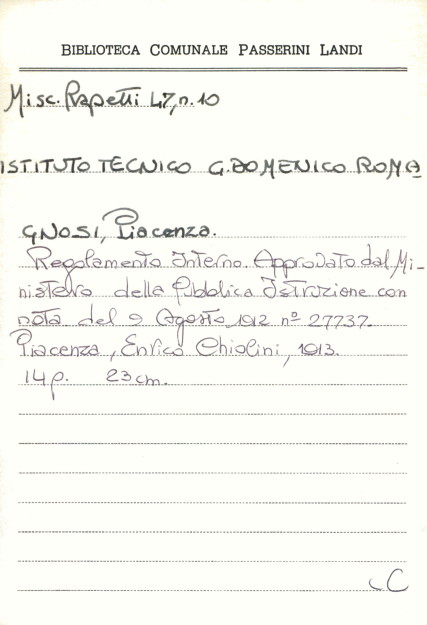 BIBLIOTECA COMUNALE PASSERINI LANDI
Misc. Rapetti 47, n. 10
ISTITUTO TECNICO G. DOMENICO ROMA
GNOSI, Piacenza.
Regolamento Interno. Approvato dal Mi-
nistero della Pubblica Istruzione con
nota del 9 Agosto 1912 nº 27737.
Piacenza, Enrico Chiolini, 1913.
14 p. 23 cm.
C